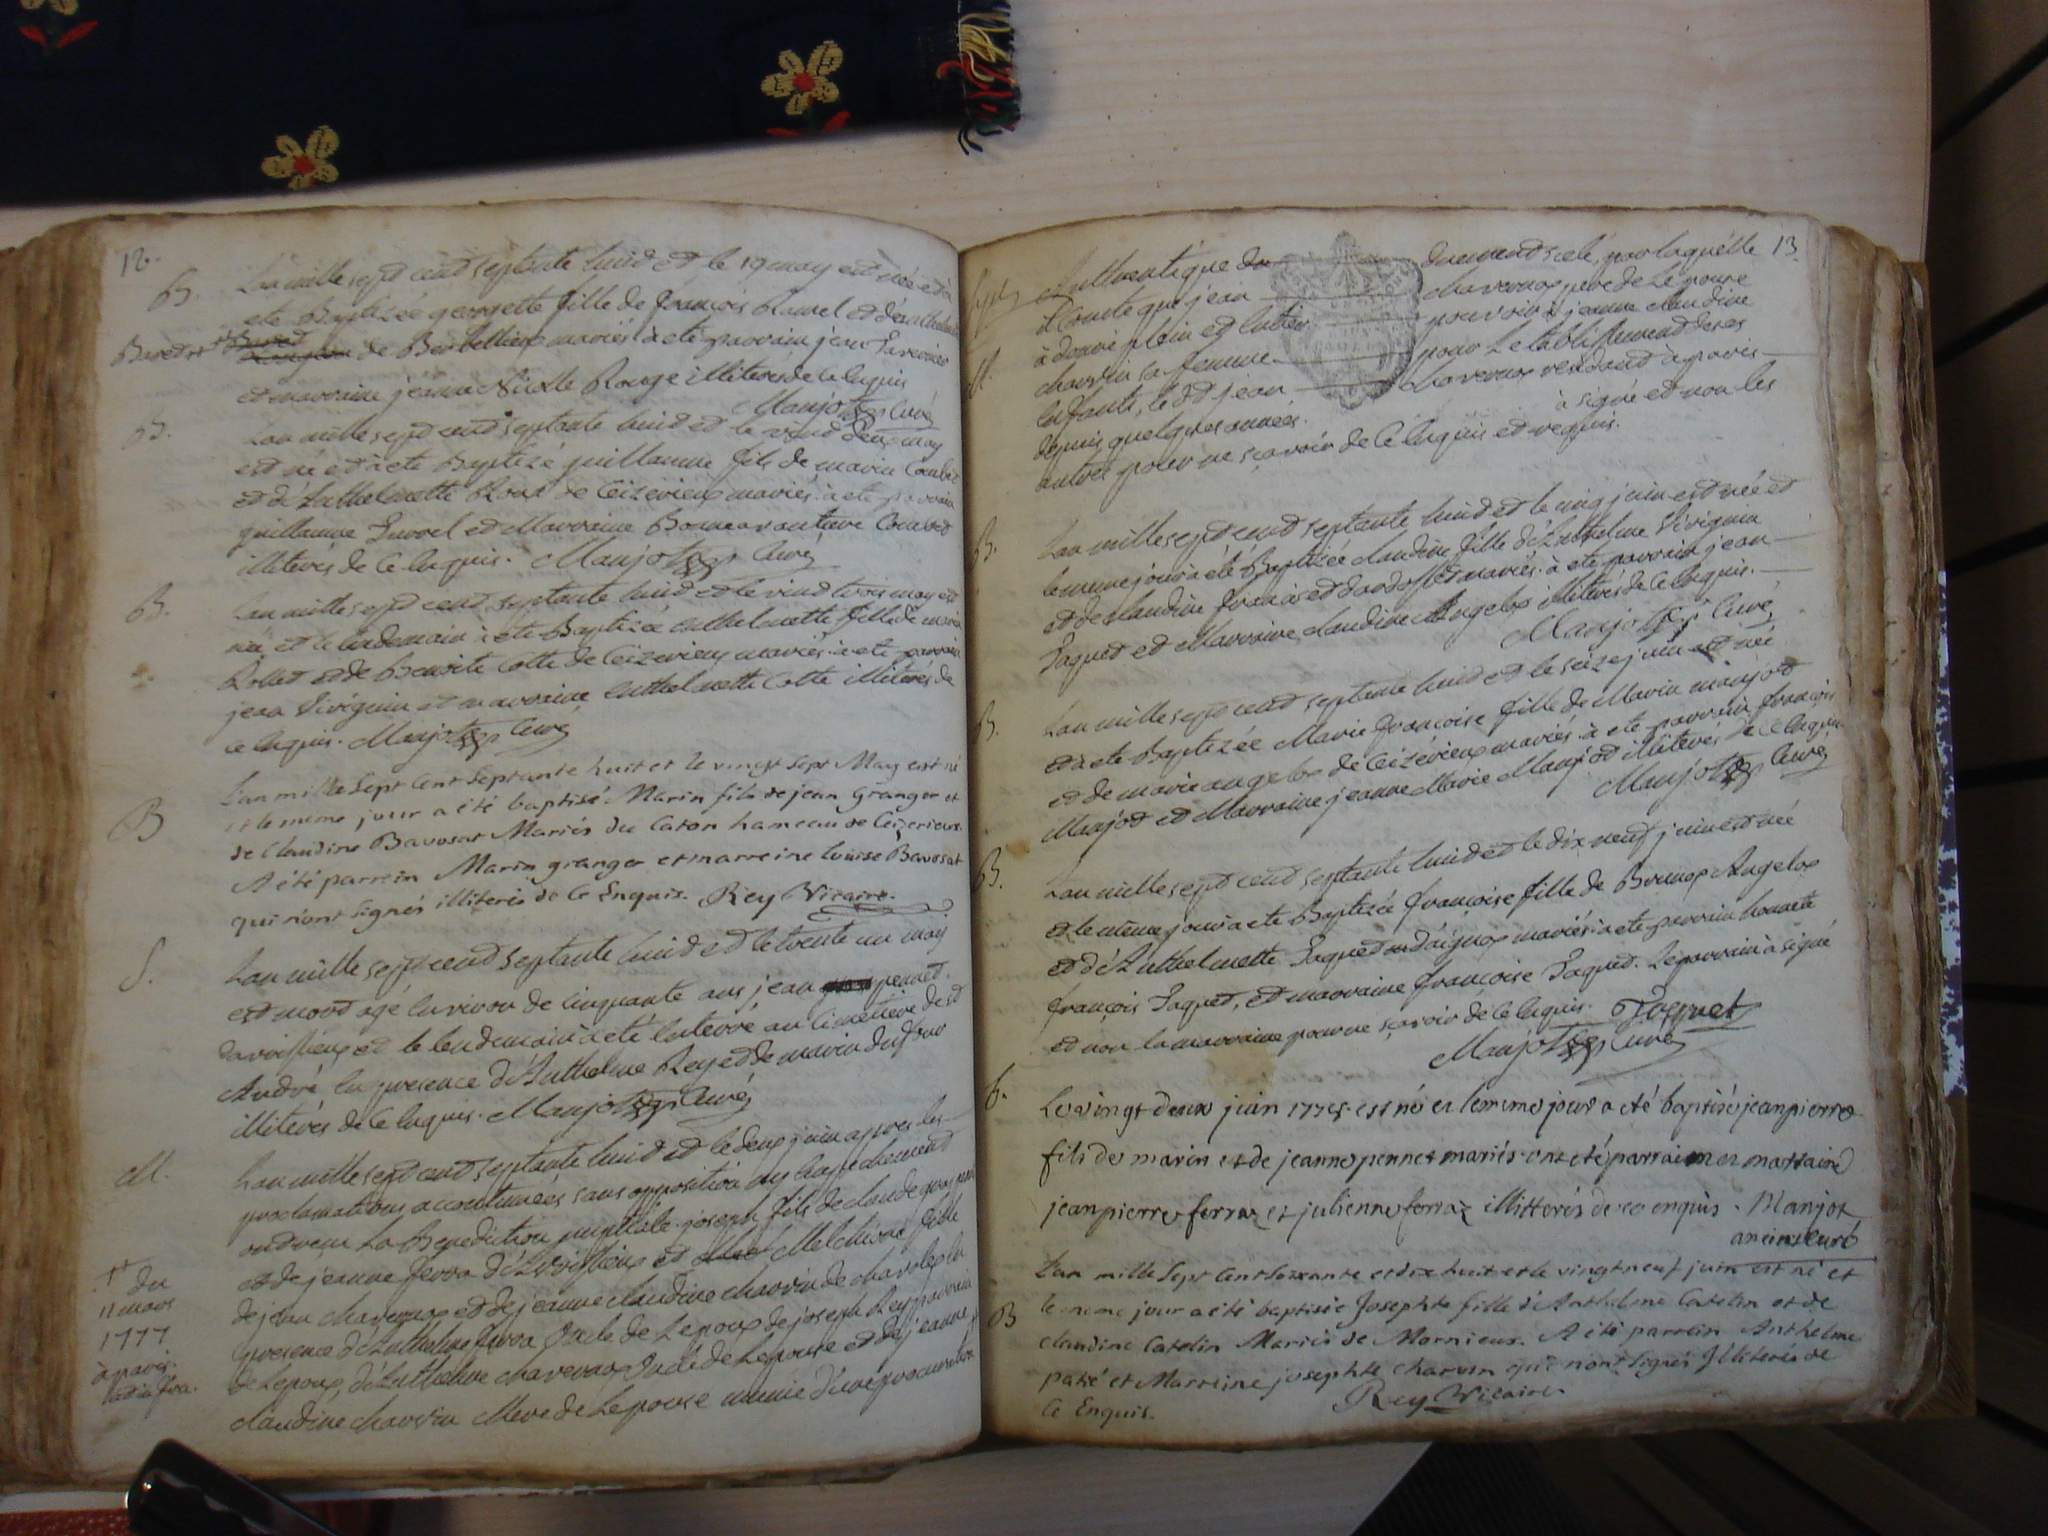 12.
B. Lan mille sept cent septante huid et le 19 may est née et à
ete Baptizée georgette fille de françois
de mariés à ete parrain jean
et marraine jeanne Nicolle Rouge illiterés de ce enquis
Manjot Curé
B. Lan mille sept cent septante huid et le vind deux may
est né et à ete Baptizé guillaume fils de marin Combet
et dé Enthelmette Roux de Ceizerieux mariés à ete parrain
guillaume et Marraine Bonneaventure Combet
illiterés de ce enquis. Manjot Curé
B. Lan mille sept cent septante huid et le vind trois may est
née et le lendemain à ete Baptizée enthelmette fille de marin
Rollet et de Benoite Cotte de Ceizerieux mariés à ete parrain
jean Viviguin et marraine enthelmette Cotte illiterés de
ce enquis. Manjot Curé
B L'an mille Sept Cent Septante huit et le vingt sept May est né
et le meme jour a été baptisé Marin fils de jean Granger et
de Claudine Bavosat Mariés du Caton hameau de Ceizerieux.
A été parrein Marin granger et marreine Louise Bavosat
qui n'ont signés illiterés de ce Enquis. Rey Vicaire.
S. Lan mille sept cend septante huid et le trente un may
est mord agé environ de cinquante ans jean pennet
et le lendemain à eté enterré au Cimetière de st
André en presence d'Anthelme Rey et de marin dufour
illiterés de ce enquis. Manjot Curé
M. Lan mille sept cend septante huid et le deux juin apres les
proclamations accoutumées sans opposition ny empechement
ond reçu La Benediction nuptiale joseph fils de claude
et de jeanne ferra et Melchiore fille
de jean chavenoux et de jeanne claudine charvin de
presence d'Enthelme ferra Oncle de Lepoux de joseph Rey parrain
de Lepoux, d'Enthelme chavenoux Oncle de Lepouse et de jeanne
claudine charvin Mere de Lepouse munie d'une procuration
du
11 mars
1777
à paris
13.
Authentique du duement scelé, par laquelle
il Conste que jean chavenoux pere de Lepouse
à donné plein et entier pouvoir à jeanne claudine
charvin sa femme pour Letablissement de ses
enfants, le dt jean chavenoux residant à paris
depuis quelques années. à signé et non les
autres pour ne sçavoir de ce enquis et requis.
B. Lan mille sept cend septante huid et le cinq juin est née et
le meme jour à été Baptizée claudine fille d'Enthelme Viviguin
et de claudine mariés à ete parrain jean
Paquet et Marraine claudine Angelox illiterés de ce enquis.
Manjot Curé
B. Lan mille sept cend septante huid et le seize juin est née
et à ete Baptizée Marie françoise fille de Marin manjot
et de marie angelox de Ceizérieux mariés à ete parrain françois
Manjot et Marraine jeanne Marie Manjot illiterés de ce enquis
Manjot Curé
B. Lan mille sept cend septante huid et le dix neuf juin est née
et le même jour à ete Baptizée françoise fille de Bruno Angelox
et dé Enthelmette Paquet mariés à ete parrain honnete
françois Paquet, et marraine françoise Paquet. Le parrain à signé
et non la marraine pour ne sçavoir de ce enquis. Paquet
Manjot Curé
b. Le vingt deux juin 1778 est né et le meme jour a eté baptisé jean pierre
fils de marin et de jeanne pennet mariés ont eté parrain et marraine
jean pierre ferraz et julienne ferraz illitterés de ce enquis. Manjot
ancien curé
B L'an mille Sept Cent Soixante et dix huit et le vingt neuf juin est né et
le meme jour a été baptisée Josephte fille d'Anthelme Catelin et de
claudine Catelin Mariés de Mornieux. A été parrein Anthelme
patié et Marreine josephte charvin qui n'ont signés Illiterés de
Ce Enquis. Rey Vicaire